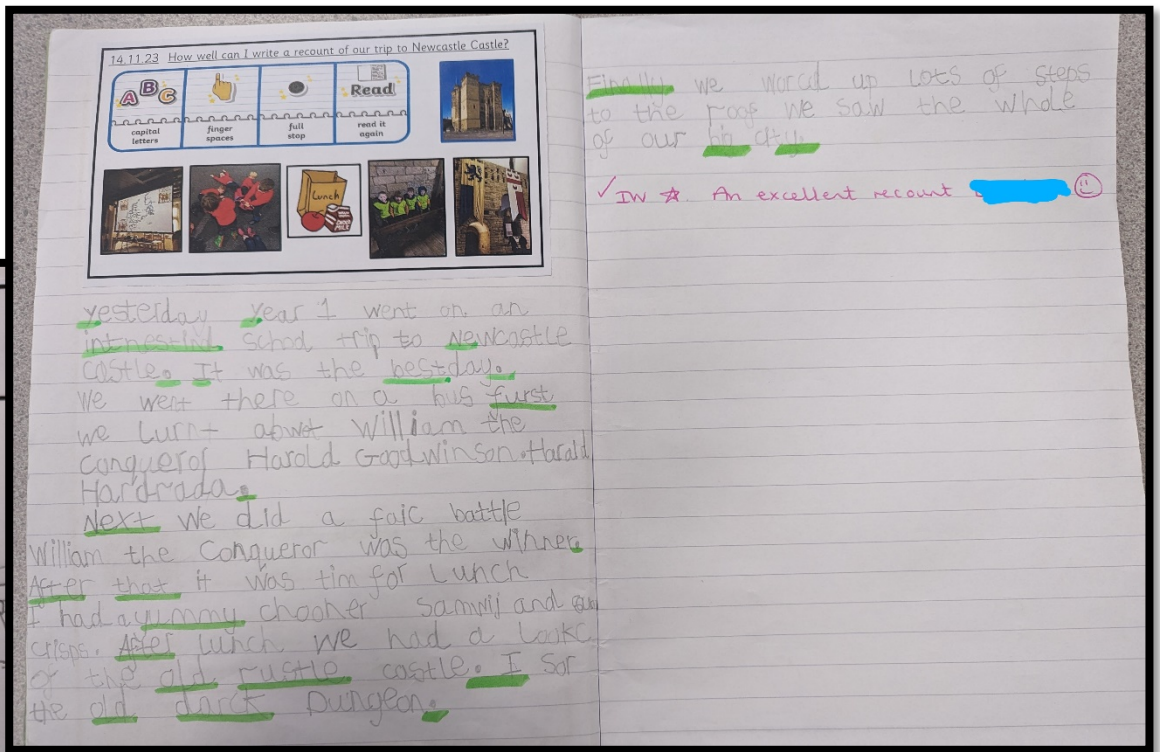 14.11.23 How well can I write a recount of our trip to Newcastle Castle?
A B C
Read
capital letters
finger spaces
full stop
read it again
Lunch
yesterday year 1 went on an
intrestind school trip to Newcastle
castle. It was the best day.
we went there on a bus furst
we lurnt abwot William the
Conqueror Harold Goodwinson. Harald
Hardrada.
Next We did a faic battle
William the Conqueror was the winner.
After that it was tim for Lunch
I had a yummy chooner samwij and
crisps. After lunch we had a
of the old rustle castle. I sor
the old darck Dungeon.
Finally we worcd up Lots of steps
to the roof we saw the whole
of our city.
✓ IW ☆. An excellent recount